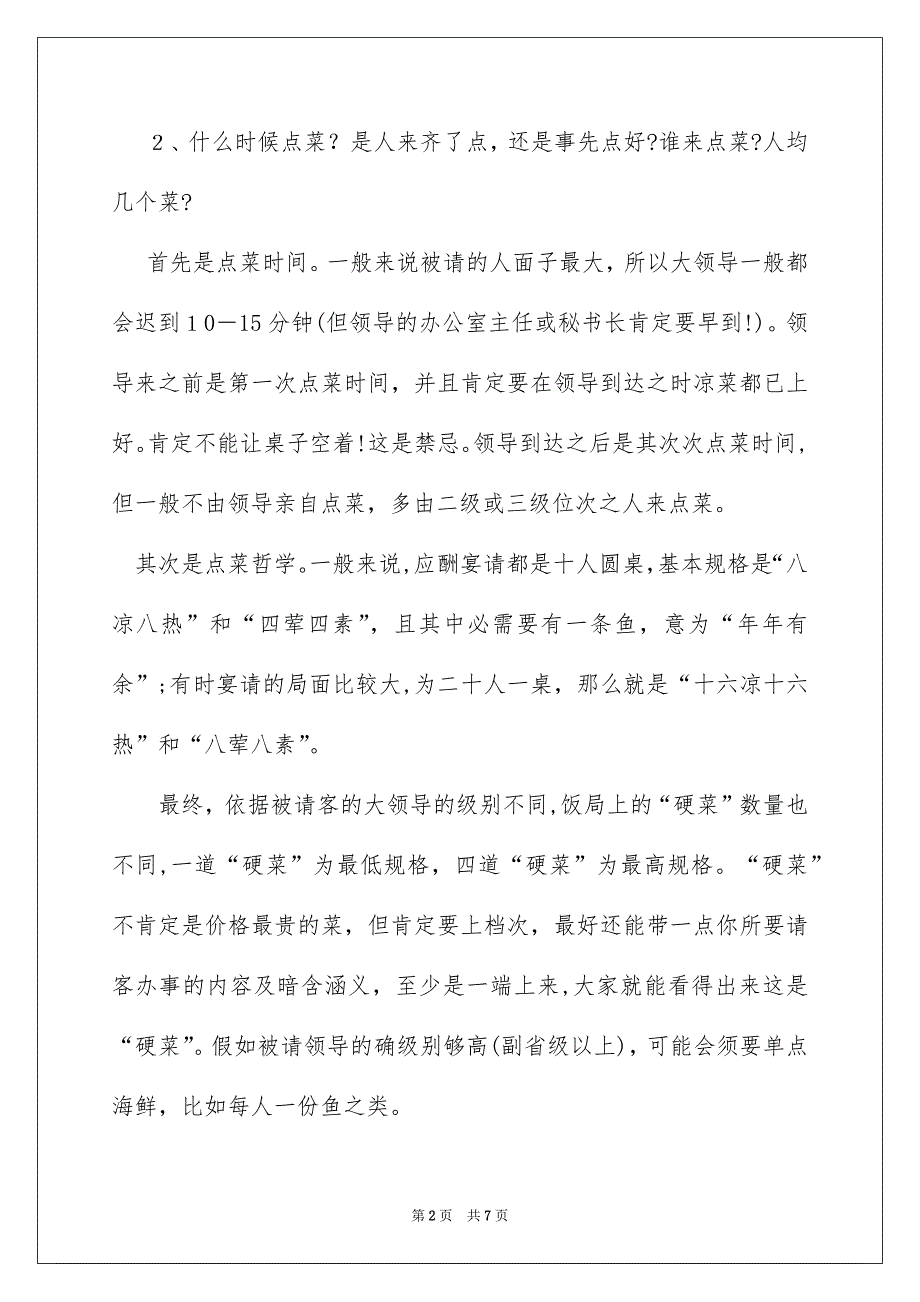 2、什么时候点菜？是人来齐了点，还是事先点好?谁来点菜?人均
几个菜?
首先是点菜时间。一般来说被请的人面子最大，所以大领导一般都
会迟到10－15分钟(但领导的办公室主任或秘书长肯定要早到!)。领
导来之前是第一次点菜时间，并且肯定要在领导到达之时凉菜都已上
好。肯定不能让桌子空着!这是禁忌。领导到达之后是其次次点菜时间,
但一般不由领导亲自点菜，多由二级或三级位次之人来点菜。
其次是点菜哲学。一般来说,应酬宴请都是十人圆桌,基本规格是“八
凉八热”和“四荤四素”，且其中必需要有一条鱼，意为“年年有
余”;有时宴请的局面比较大,为二十人一桌，那么就是“十六凉十六
热”和“八荤八素”。
最终，依据被请客的大领导的级别不同,饭局上的“硬菜”数量也
不同,一道“硬菜”为最低规格，四道“硬菜”为最高规格。“硬菜”
不肯定是价格最贵的菜，但肯定要上档次，最好还能带一点你所要请
客办事的内容及暗含涵义，至少是一端上来,大家就能看得出来这是
“硬菜”。假如被请领导的确级别够高(副省级以上)，可能会须要单点
海鲜，比如每人一份鱼之类。
第2页 共7页